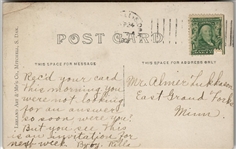 POST CARD
THIS SPACE FOR MESSAGE
THIS SPACE FOR ADDRESS ONLY
Rec'd your card
this morning You
were not looking
for an answer
so soon were you?
But you see This
is an invitation for
next week. By by. Rilla
Mr. Almer
East Grand Forks
Minn